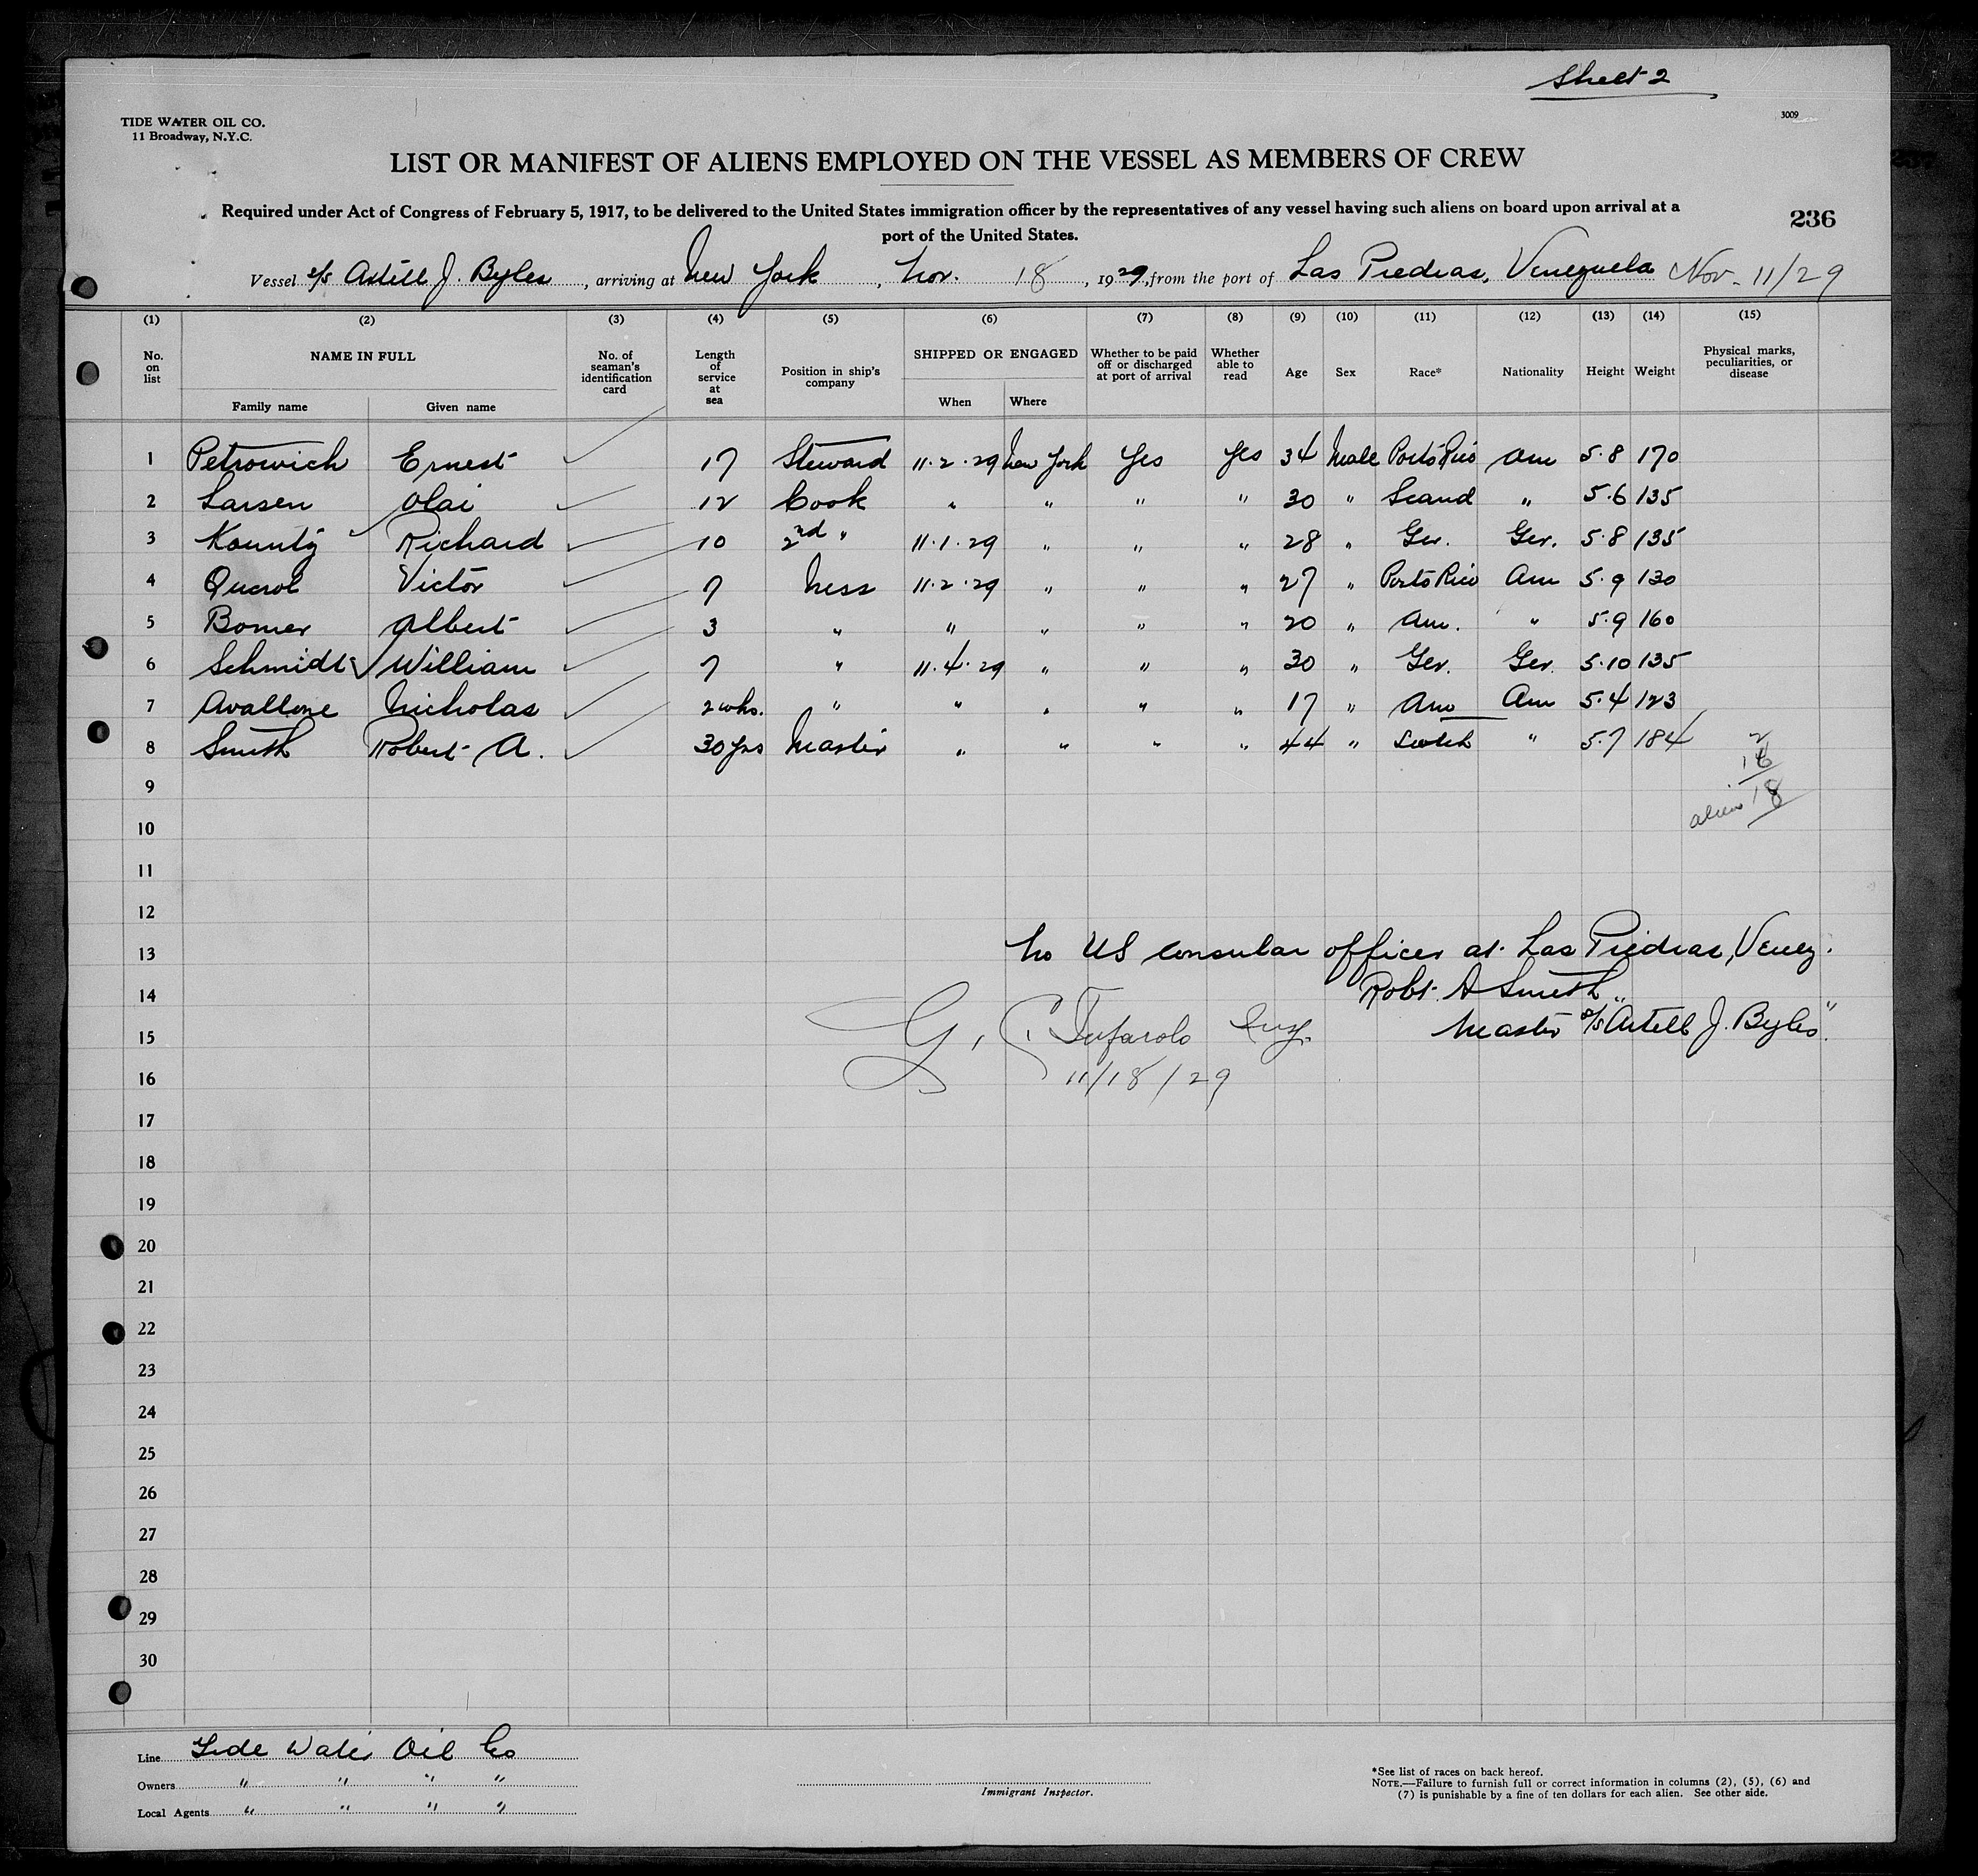 Sheet 2
TIDE WATER OIL CO.
11 Broadway, N.Y.C.
3009
LIST OR MANIFEST OF ALIENS EMPLOYED ON THE VESSEL AS MEMBERS OF CREW
Required under Act of Congress of February 5, 1917, to be delivered to the United States immigration officer by the representatives of any vessel having such aliens on board upon arrival at a
port of the United States.
236
Vessel s/s Axtell J. Byles, arriving at New York, Nov. 18, 1929, from the port of Las Piedras, Venezuela Nov - 11/29
(1) (2) (3) (4) (5) (6) (7) (8) (9) (10) (11) (12) (13) (14) (15)
No. on list NAME IN FULL No. of seaman's identification card Length of service at sea Position in ship's company SHIPPED OR ENGAGED Whether to be paid off or discharged at port of arrival Whether able to read Age Sex Race* Nationality Height Weight Physical marks, peculiarities, or disease
Family name Given name When Where
1 Petrowich Ernest 17 Steward 11.2.29 New York Yes Yes 34 Male Porto Rico Am 5.8 170
2 Larsen Olai 12 Cook " " " " 30 " Scand " 5.6 135
3 Kountz Richard 10 2nd " 11.1.29 " " " 28 " Ger. Ger. 5.8 135
4 Querol Victor 7 Mess 11.2.29 " " " 27 " Porto Rico Am 5.9 130
5 Bomer Albert 3 " " " " " 20 " Am. " 5.9 160
6 Schmidt William 7 " 11.4.29 " " " 30 " Ger. Ger. 5.10 135
7 Avallone Nicholas 2 wks. " " " " " 17 " Am Am 5.4 123
8 Smith Robert A. 30 yrs Master " " " " 44 " Scotch " 5.7 184 2
16
9
alien 18
10
11
12
13 No US consular officer at Las Piedras, Venez.
14 Robt. A Smith
15 G. Tufarolo Insp. Master s/s "Axtell J. Byles".
16 11/18/29
17
18
19
20
21
22
23
24
25
26
27
28
29
30
Line Tide Water Oil Co
Owners " " " "
Local Agents " " " "
Immigrant Inspector.
*See list of races on back hereof.
NOTE.—Failure to furnish full or correct information in columns (2), (5), (6) and
(7) is punishable by a fine of ten dollars for each alien. See other side.